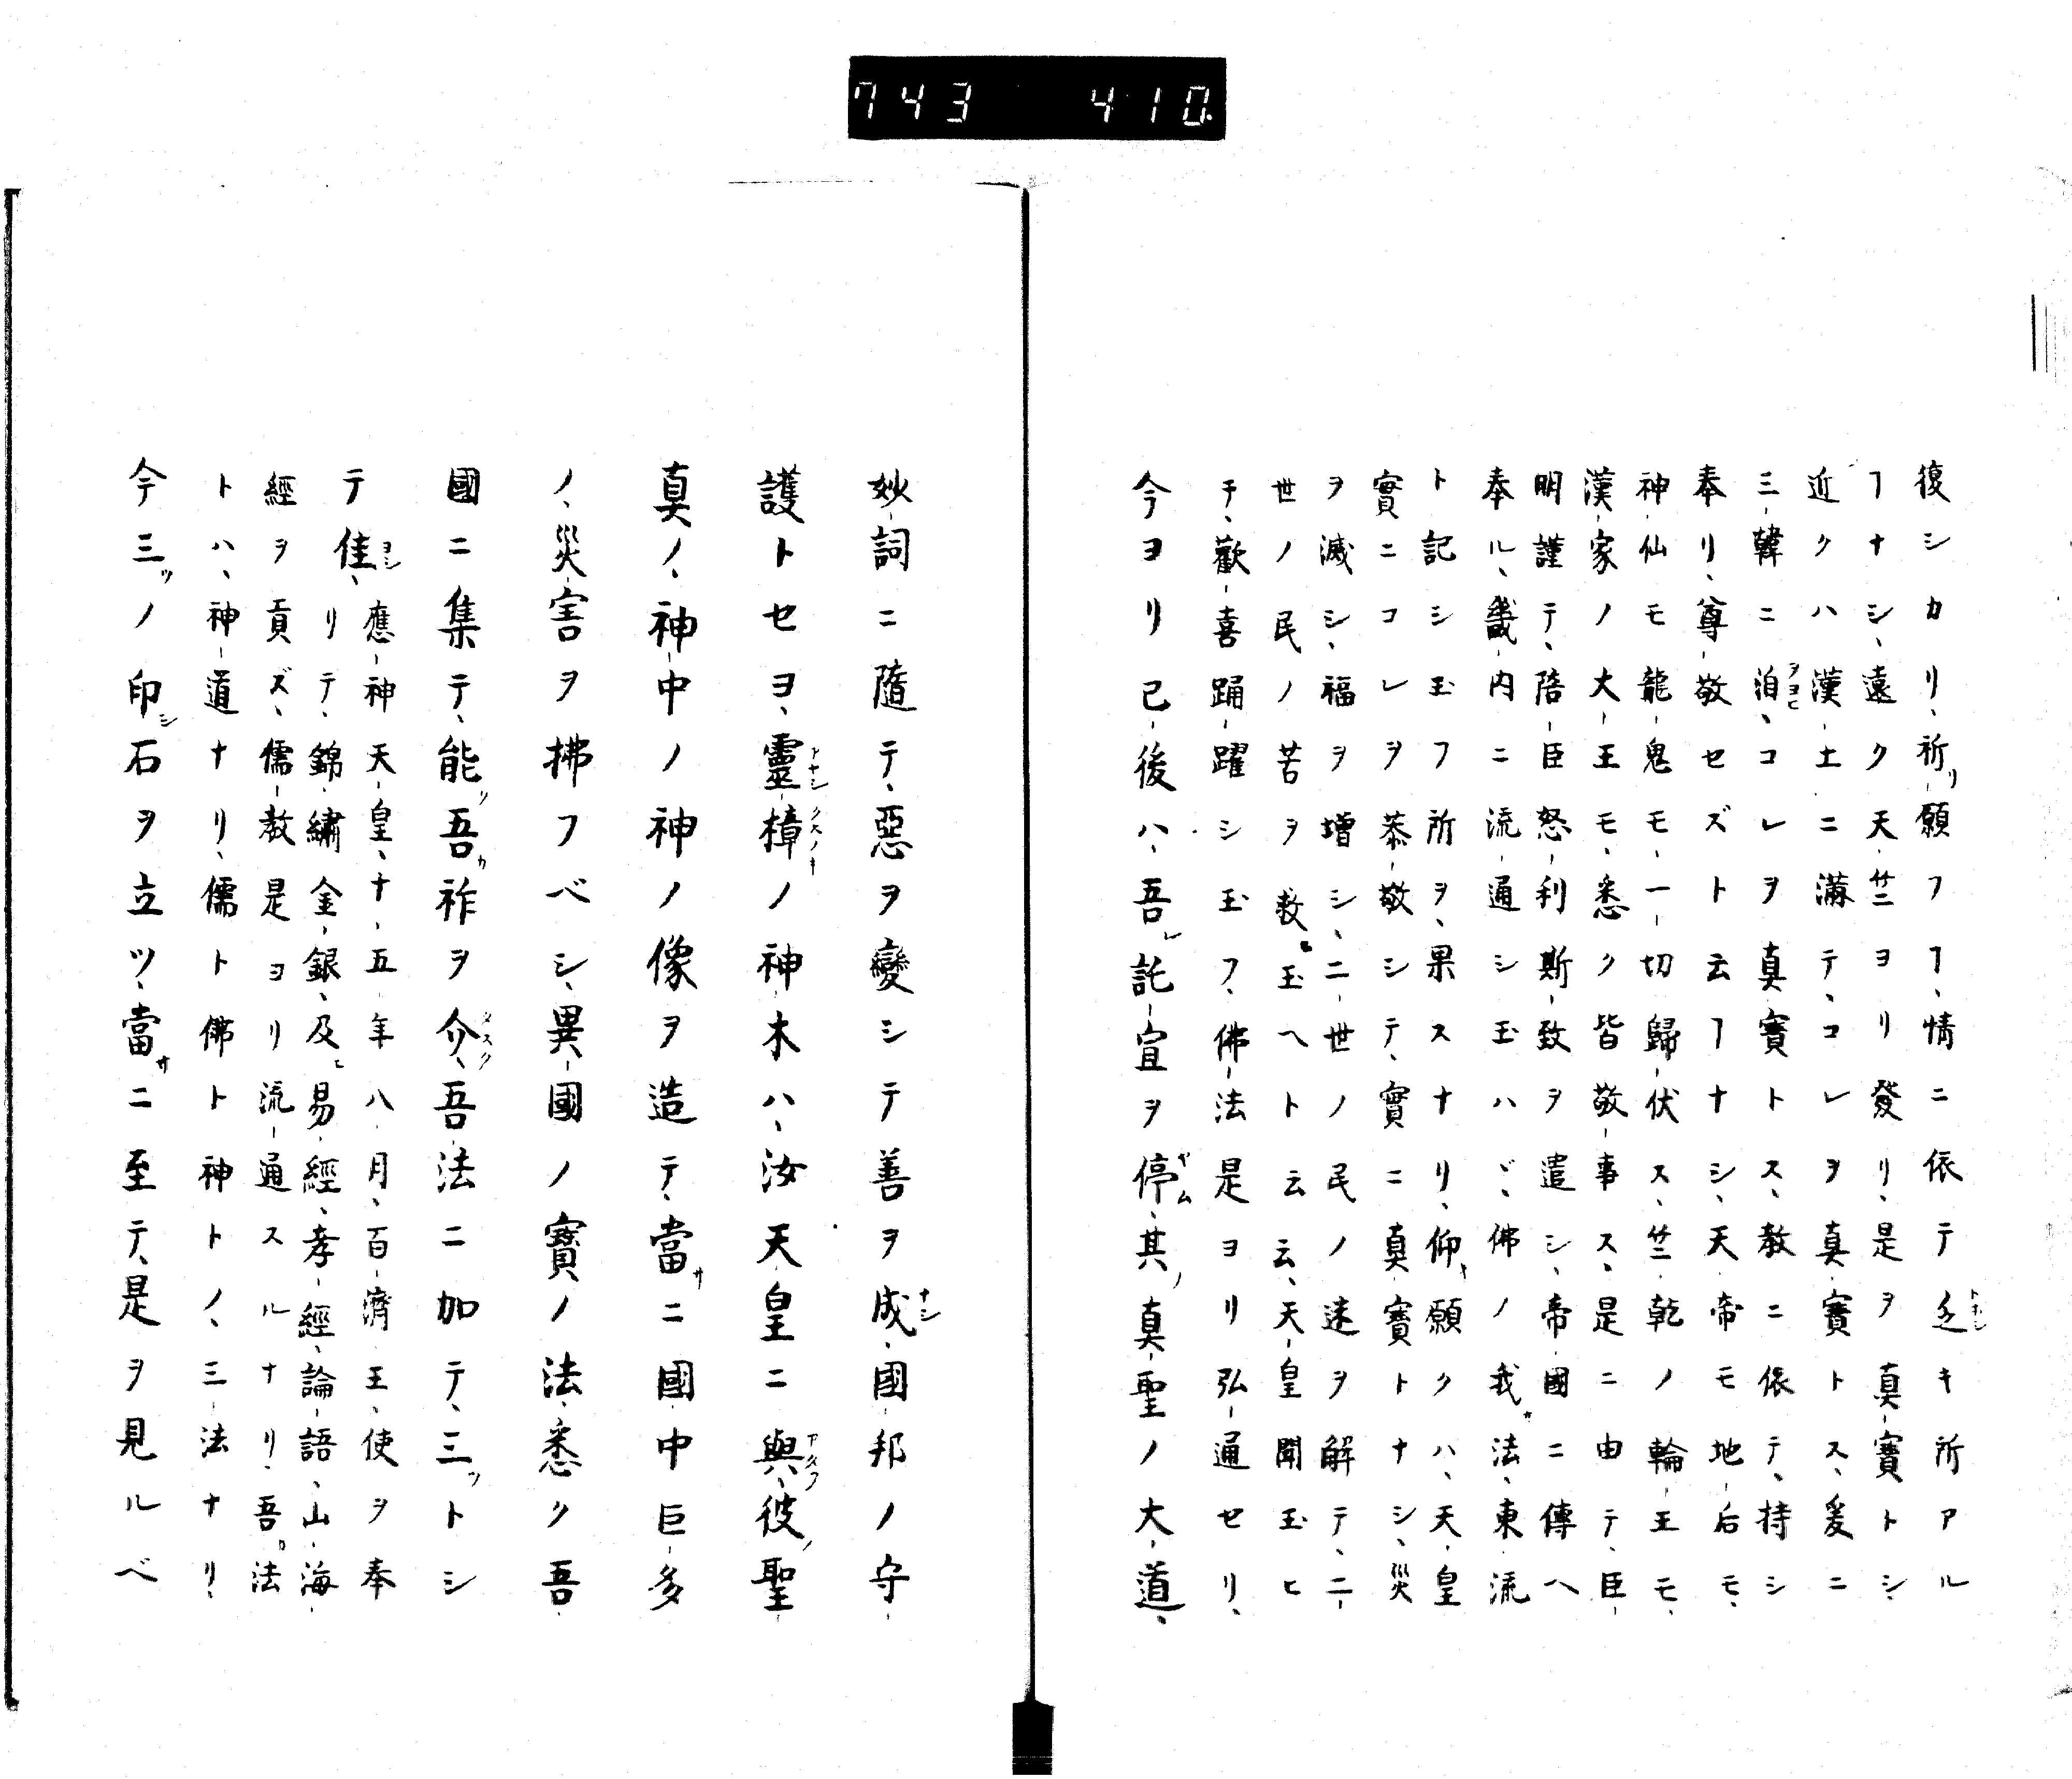 743 410
復シカリ、祈リ願フヿ、情ニ依テ乏キ所アル
ヿナシ、遠ク天竺ヨリ發リ、是ヲ真-寶トシ、
近クハ漢-土ニ滿テ、コレヲ真寶トス、爰ニ
三-韓ニ洎、コレヲ真寶トス、教ニ依テ、持シ
奉リ、尊-敬セズト云ヿナシ、天-帝モ地-后モ、
神-仙モ龍-鬼モ、一-切歸-伏ス、竺-乾ノ輪-王モ、
漢-家ノ大-王モ、悉ク皆敬-事ス、是ニ由テ、臣-
明謹テ、陪-臣怒-利斯-致ヲ遣シ、帝-國ニ傳ヘ
奉ル、畿-内ニ流-通シ玉ハヾ、佛ノ我カ法、東-流
ト記シ玉フ所ヲ、果スナリ、仰キ願クハ、天-皇
實ニコレヲ恭-敬シテ、實ニ真-寶トナシ、災
ヲ滅シ、福ヲ增シ、二-世ノ民ノ迷ヲ解テ、二-
世ノ民ノ苦ヲ救ヒ玉ヘト云云、天-皇聞玉ヒ
テ、歡-喜踊-躍シ玉フ、佛-法是ヨリ弘-通セリ、
今ヨリ已-後ハ、吾レ託-宣ヲ停、其ノ真-聖ノ大-道、
妙-詞ニ隨テ、惡ヲ變シテ善ヲ成、國-邦ノ守-
護トセヨ、靈-樟ノ神-木ハ、汝天-皇ニ與、彼ノ聖-
真ノ、神-中ノ神ノ像ヲ造テ、當サニ國中巨-多
ノ、災-害ヲ拂フベシ、異-國ノ寶ノ法、悉ク吾
國ニ集テ、能ク吾カ祚ヲ介、吾法ニ加テ、三ツトシ
テ佳、應-神天-皇、十-五年八月、百-濟王、使ヲ奉
リテ、錦-繡金-銀、及ヒ易-經、孝-經、論-語、山-海-
經ヲ貢ズ、儒-教是ヨリ流-通スルナリ、吾カ法
トハ、神-道ナリ、儒ト佛ト神トノ、三-法ナリ、
今三ツノ印シ石ヲ立ツ、當サニ至テ、是ヲ見ルベ